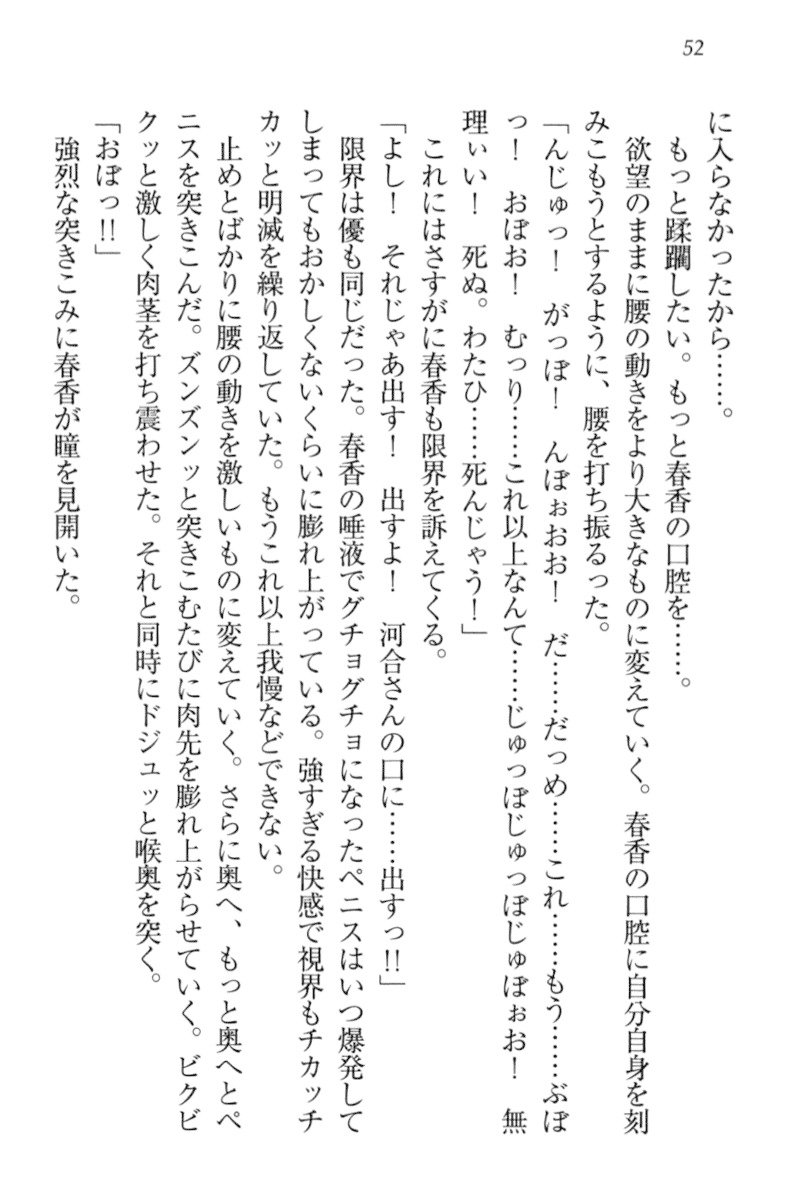 52
に入らなかったから……。
もっと蹂躙したい。もっと春香の口腔を……。
欲望のままに腰の動きをより大きなものに変えていく。春香の口腔に自分自身を刻
みこもうとするように、腰を打ち振るった。
「んじゅっ！　がっぽ！　んぽぉおお！　だ……だっめ……これ……もう……ぶぽ
っ！　おぽお！　むっり……これ以上なんて……じゅっぽじゅっぽじゅぽぉお！　無
理ぃい！　死ぬ。わたひ……死んじゃう！」
これにはさすがに春香も限界を訴えてくる。
「よし！　それじゃあ出す！　出すよ！　河合さんの口に……出すっ!!」
限界は優も同じだった。春香の唾液でグチョグチョになったペニスはいつ爆発して
しまってもおかしくないくらいに膨れ上がっている。強すぎる快感で視界もチカッチ
カッと明滅を繰り返していた。もうこれ以上我慢などできない。
止めとばかりに腰の動きを激しいものに変えていく。さらに奥へ、もっと奥へとペ
ニスを突きこんだ。ズンズンッと突きこむたびに肉先を膨れ上がらせていく。ビクビ
クッと激しく肉茎を打ち震わせた。それと同時にドジュッと喉奥を突く。
「おぽっ!!」
強烈な突きこみに春香が瞳を見開いた。